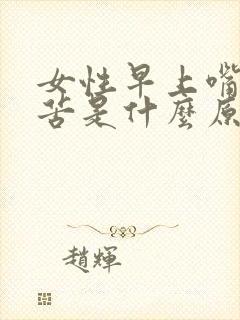 女性早上嘴
苦是什麼原
趙輝